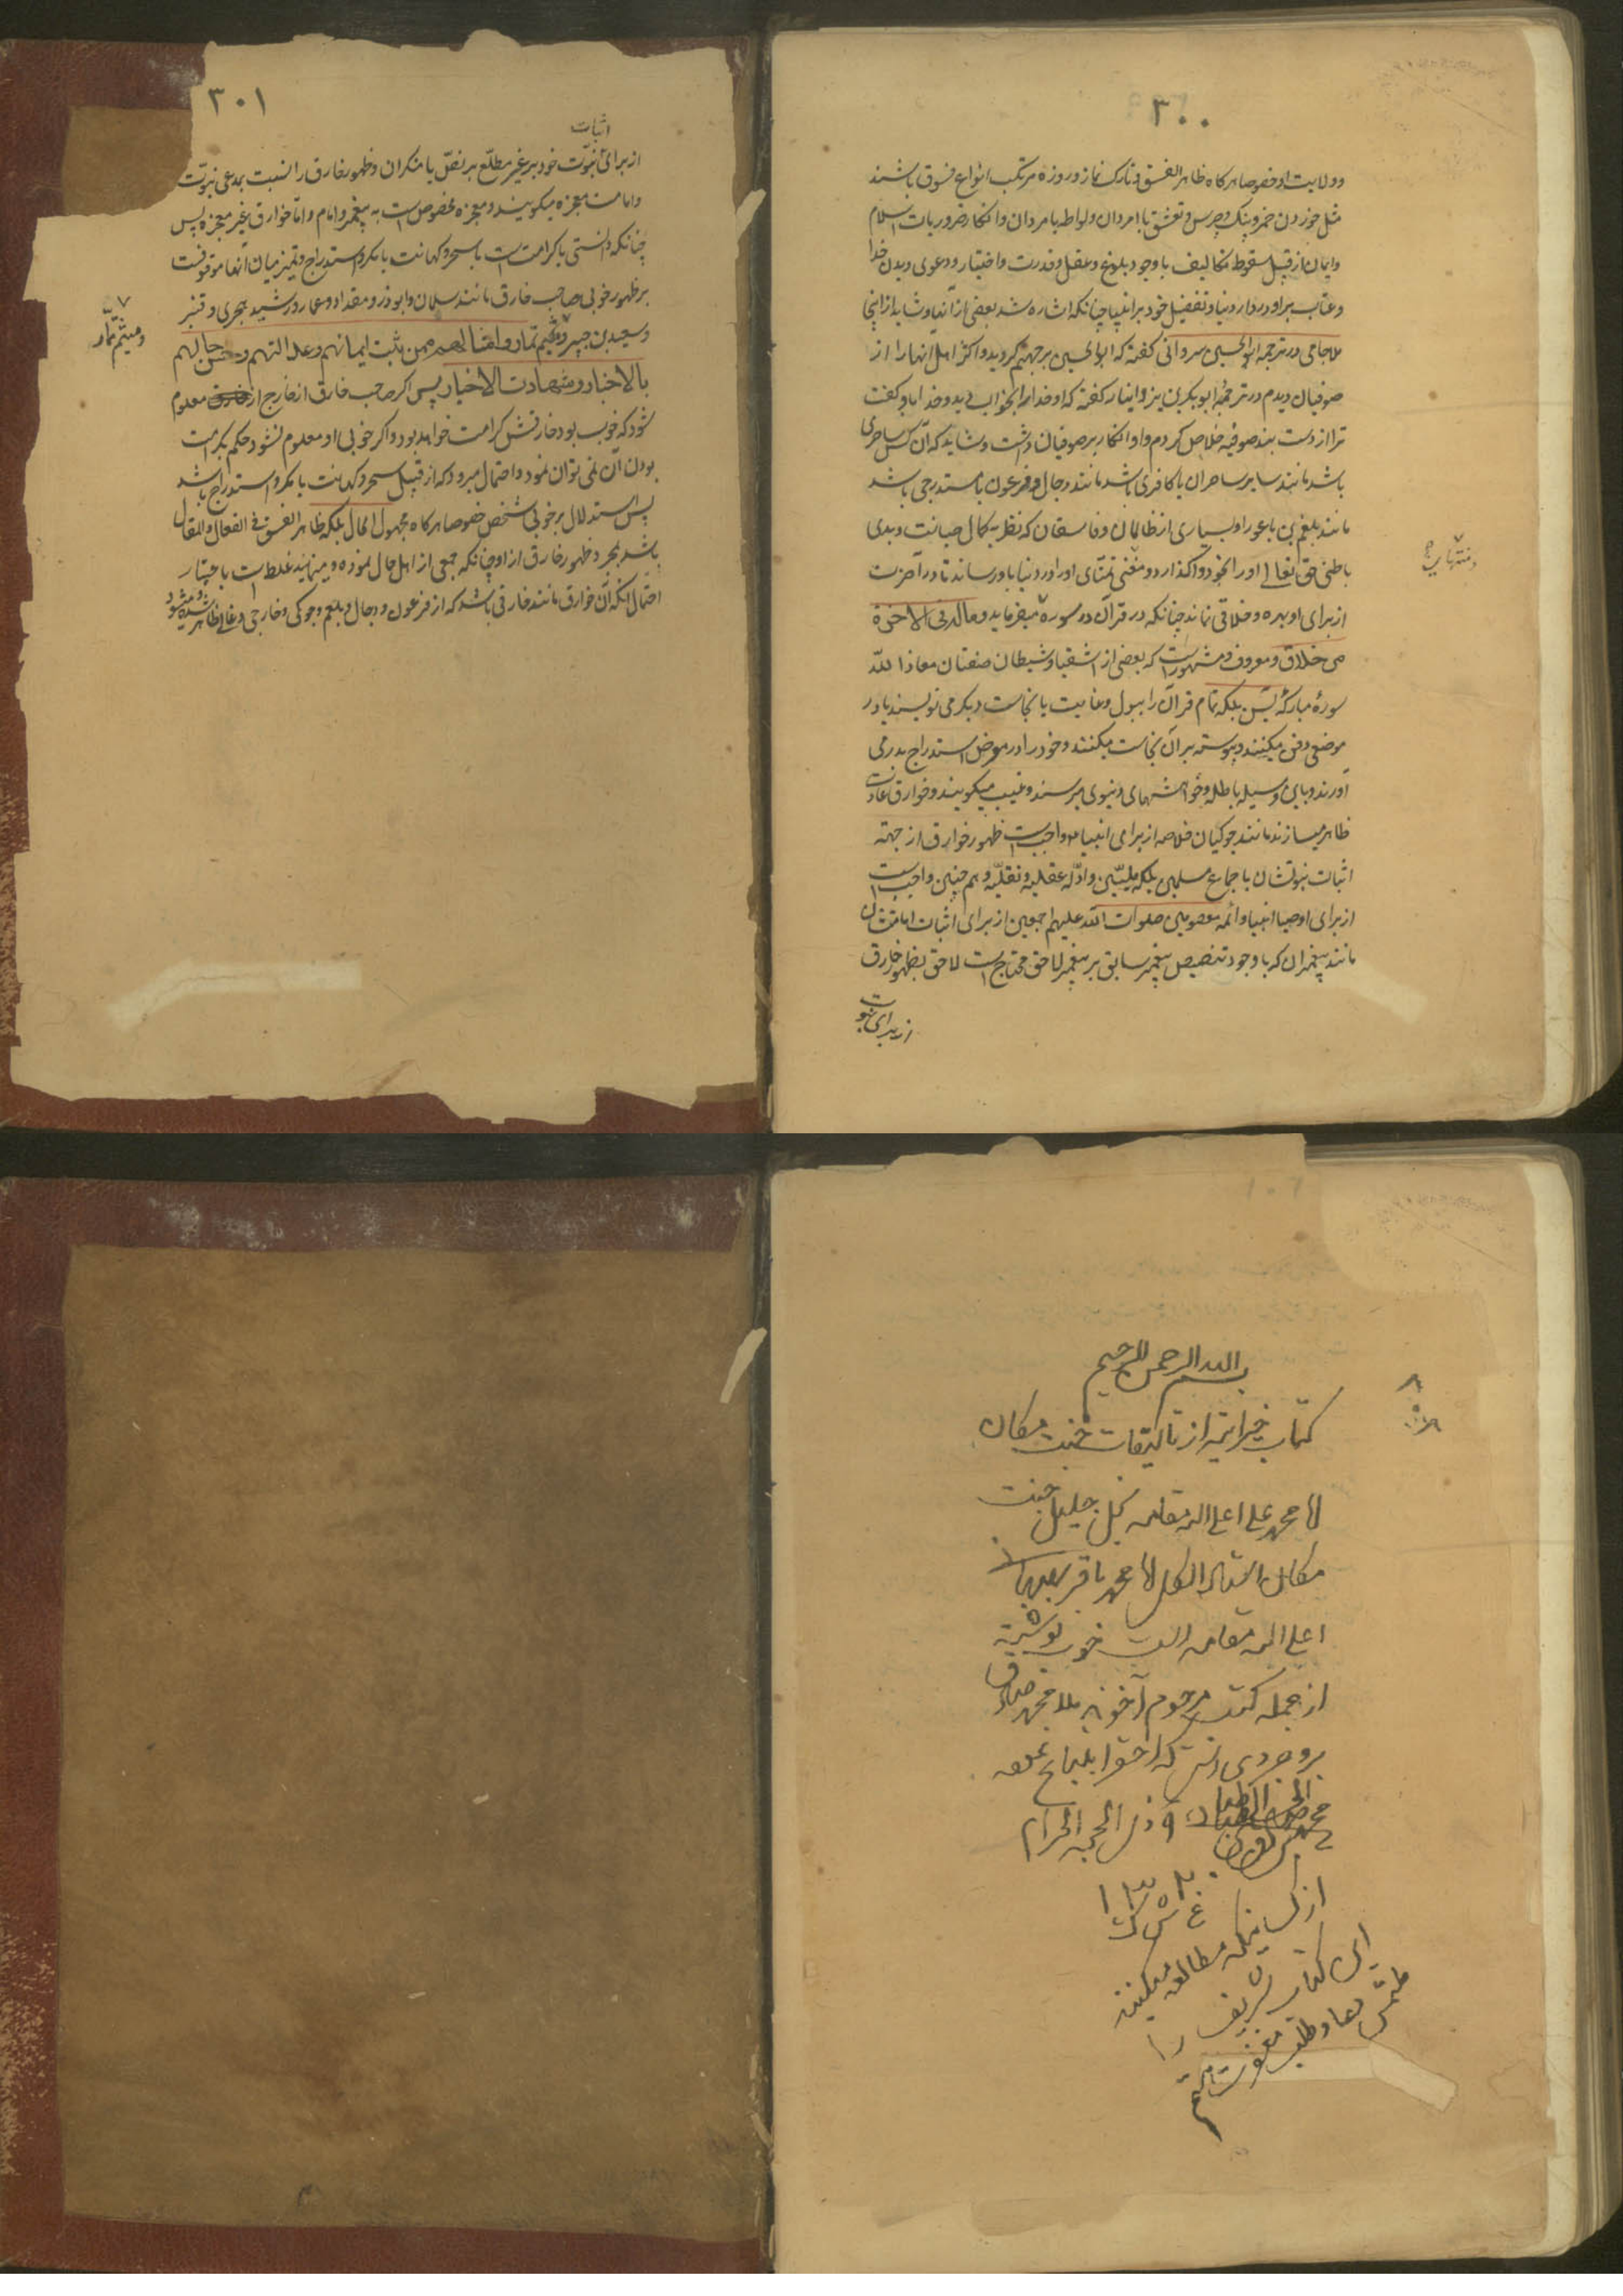 ٣٠٠
و ولایت او خصوصا هرکاه ظاهر الفسق و تارک نماز و روزه و مرتکب انواع فسوق باشند
مثل خوردن خمر و بنک و چرس و تعشق با امردان و لواطه با مردان و انکار ضروریات اسلام
و ایمان از قبیل سقوط تکالیف با وجود بلوغ و عقل و قدرت و اختیار و دعوی دیدن خدا
و عتاب بر او در دار دنیا و تفضیل خود بر انبیا چنانکه اشاره شد بعضی از آنها و شاید از اینجا
ملا جامی در ترجمه ابو الحسین سروانی کفته که ابو الحسین بر جهنم کردید و اکثر اهل آنها را از
صوفیان دیدم در ترجمهٔ ابو بکر بن یزدانیار کفته که او خدا را بخواب دید و خدا باو کفت
ترا از دست بند صوفیه خلاص کردم و او انکار بر صوفیان داشت و شاید که آن کس ساحری
باشد مانند سایر ساحران یا کافری باشد مانند دجال و فرعون یا مستدرجی باشد
مانند بلعم بن باعورا و بسیاری از ظالمان و فاسقان که نظر بکمال خباثت و بدی
باطنی حق تعالی او را بخود واکذارد و متمنی تمنای او را در دنیا باو رساند تا در آخرت
از برای او بهره و خلاقی نماند چنانکه در قرآن در سوره میفرماید و ماله فی الآخرة
من خلاق و معروف و مشهور است که بعضی از اشقیا و شیطان صفتان معاذا لله
سورهٔ مبارکهٔ یس بلکه تمام قرآن را ببول و غایت یا نجاست دیکر می نویسند یا در
موضعی دفن میکنند و پیوسته بر آن نجاست میکنند و خود را در معرض استدراج بدر می
آورند و باین وسیله باطله و خواهشهای دنیوی میرسند و غیب میکویند و خوارق عادت
ظاهر میسازند مانند جوکیان خلاصه از برای انبیا واجب است ظهور خوارق از جهته
اثبات نبوتشان باجماع مسلمین بلکه ملیّین و ادلّه عقلیه و نقلیّه و هم چنین واجب است
از برای اوصیا انبیا و ائمه معصومین صلوات الله علیهم اجمعین از برای اثبات امامتشان
مانند پیغمبران که با وجود تنصیص پیغمبر سابق بر پیغمبر لاحق محتاج است لاحق بظهور خارق
از برای نبوت
٣٠١
اثبات
از برای نبوّت خود بر غیر مطلع بر نصّ یا منکران و ظهور خارق را نسبت بمدعی نبوت
و امامت معجزه میکویند و معجزه مخصوص است به پیغمبر و امام و امّا خوارق غیر معجزه پس
چنانکه دانستی یا کرامت است یا سحر و کهانت یا مکر و استدراج و تمیز میان آنها موقوفست
بر ظهور خوبی صاحب خارق مانند سلمان و ابوذر و مقداد و عمار و رشید هجری و قنبر
و سعید بن جبیر و میثم تمّار و امثالهم ممن ثبت ایمانهم و عدالتهم و حسن حالهم
و میثم تمّار
بالاخبار و شهادت الاخیار پس اکر صاحب خارق از خارج از خارق معلوم
شود که خوب بود خارقش کرامت خواهد بود و اکر خوبی او معلوم نشود حکم بکرامت
بودن آن نمی توان نمود و احتمال میرود که از قبیل سحر و کهانت یا مکر و استدراج باشد
پس استدلال بر خوبی شخص خصوصا هرکاه مجهول الحال بلکه ظاهر الفسق فی الفعال و المقال
باشد بمجرد ظهور خارق از او چنانکه جمعی از اهل حال نموده و مینمایند غلط است با
احتمال آنکه آن خوارق مانند خارقی باشد که از فرعون و دجال و بلعم و جوکی و خارجی و غالی ظاهر شده و میشود
بسم الله الرحمن الرحیم
کتاب خیراتیه از تالیفات جنت مکان
اقا محمد علی اعلی الله مقامه نجل جلیل جنت
مکان استاد الکل اقا محمد باقر بهبهانی
اعلی الله مقامه است خوب نوشته
از جمله کتب مرحوم آخوند ملا محمد صادق
بروجردی است که احقر
٩ ذی الحجه الحرام
از کسانیکه مطالعه میکنند
این کتاب شریف را
ملتمس دعا و طلب مغفرت هستم